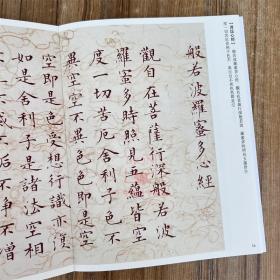 般若波羅蜜多心經
觀自在菩薩行深般若波
羅蜜多時照見五蘊皆空
度一切苦厄舍利子色不
異空空不異色色即是空
空即是色受想行識亦復
如是舍利子是諸法空相
滅不垢不淨不增